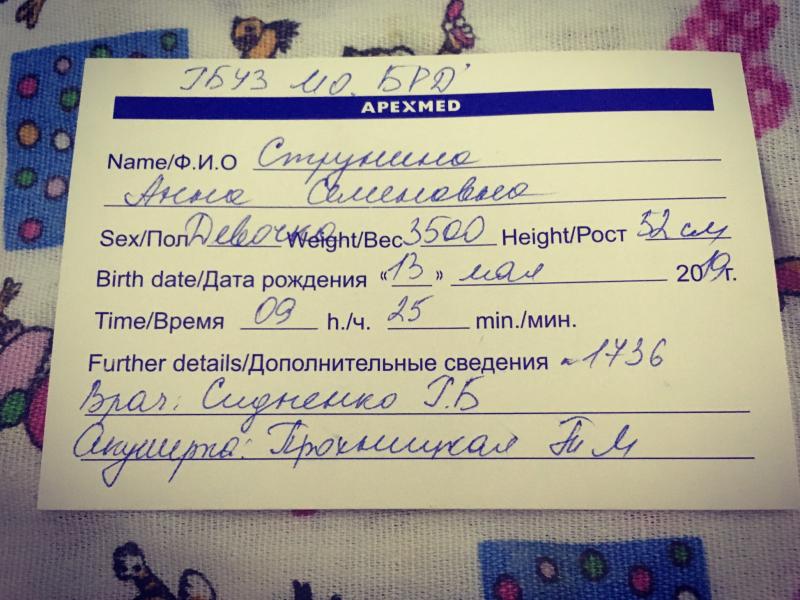 ГБУЗ МО. БРД
APEXMED
Name/Ф.И.О Струнина
Анна Семеновна
Sex/Пол Девочка Weight/Вес 3500 Height/Рост 52 см
Birth date/Дата рождения «13» мая 2019г.
Time/Время 09 h./ч. 25 min./мин.
Further details/Дополнительные сведения 1736
Врач: Сидненко Г.Б
Акушерка: Прохницкая М